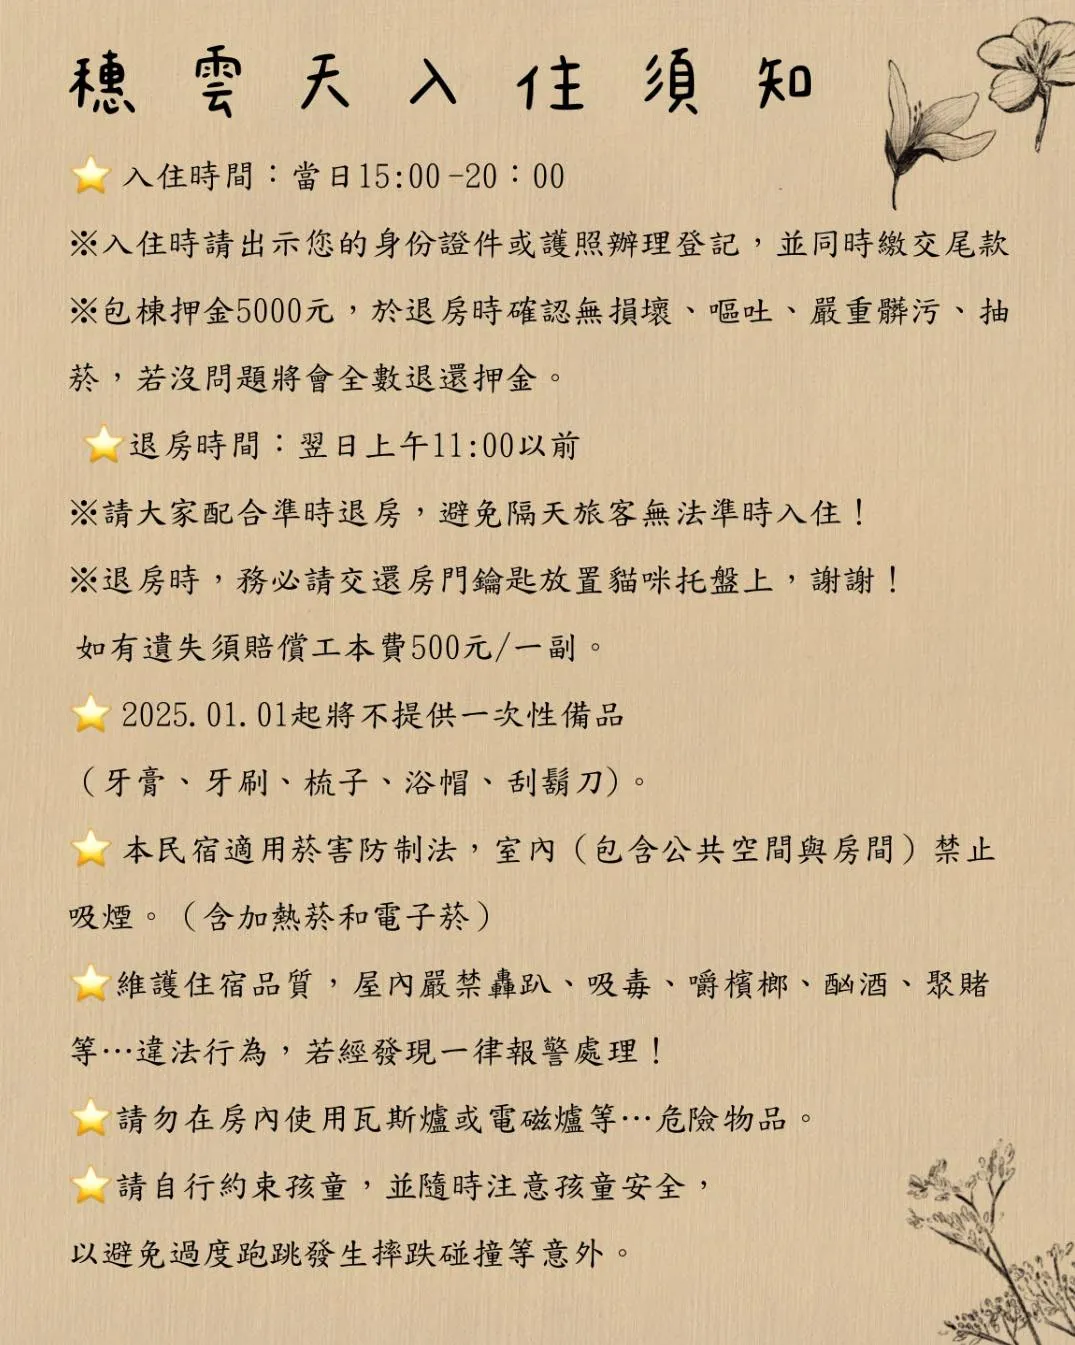 穗雲天入住須知
⭐ 入住時間：當日15:00-20：00
※入住時請出示您的身份證件或護照辦理登記，並同時繳交尾款
※包棟押金5000元，於退房時確認無損壞、嘔吐、嚴重髒污、抽
菸，若沒問題將會全數退還押金。
⭐退房時間：翌日上午11:00以前
※請大家配合準時退房，避免隔天旅客無法準時入住！
※退房時，務必請交還房門鑰匙放置貓咪托盤上，謝謝！
如有遺失須賠償工本費500元/一副。
⭐ 2025.01.01起將不提供一次性備品
（牙膏、牙刷、梳子、浴帽、刮鬍刀)。
⭐ 本民宿適用菸害防制法，室內（包含公共空間與房間）禁止
吸煙。（含加熱菸和電子菸）
⭐維護住宿品質，屋內嚴禁轟趴、吸毒、嚼檳榔、酗酒、聚賭
等…違法行為，若經發現一律報警處理！
⭐請勿在房內使用瓦斯爐或電磁爐等…危險物品。
⭐請自行約束孩童，並隨時注意孩童安全，
以避免過度跑跳發生摔跌碰撞等意外。